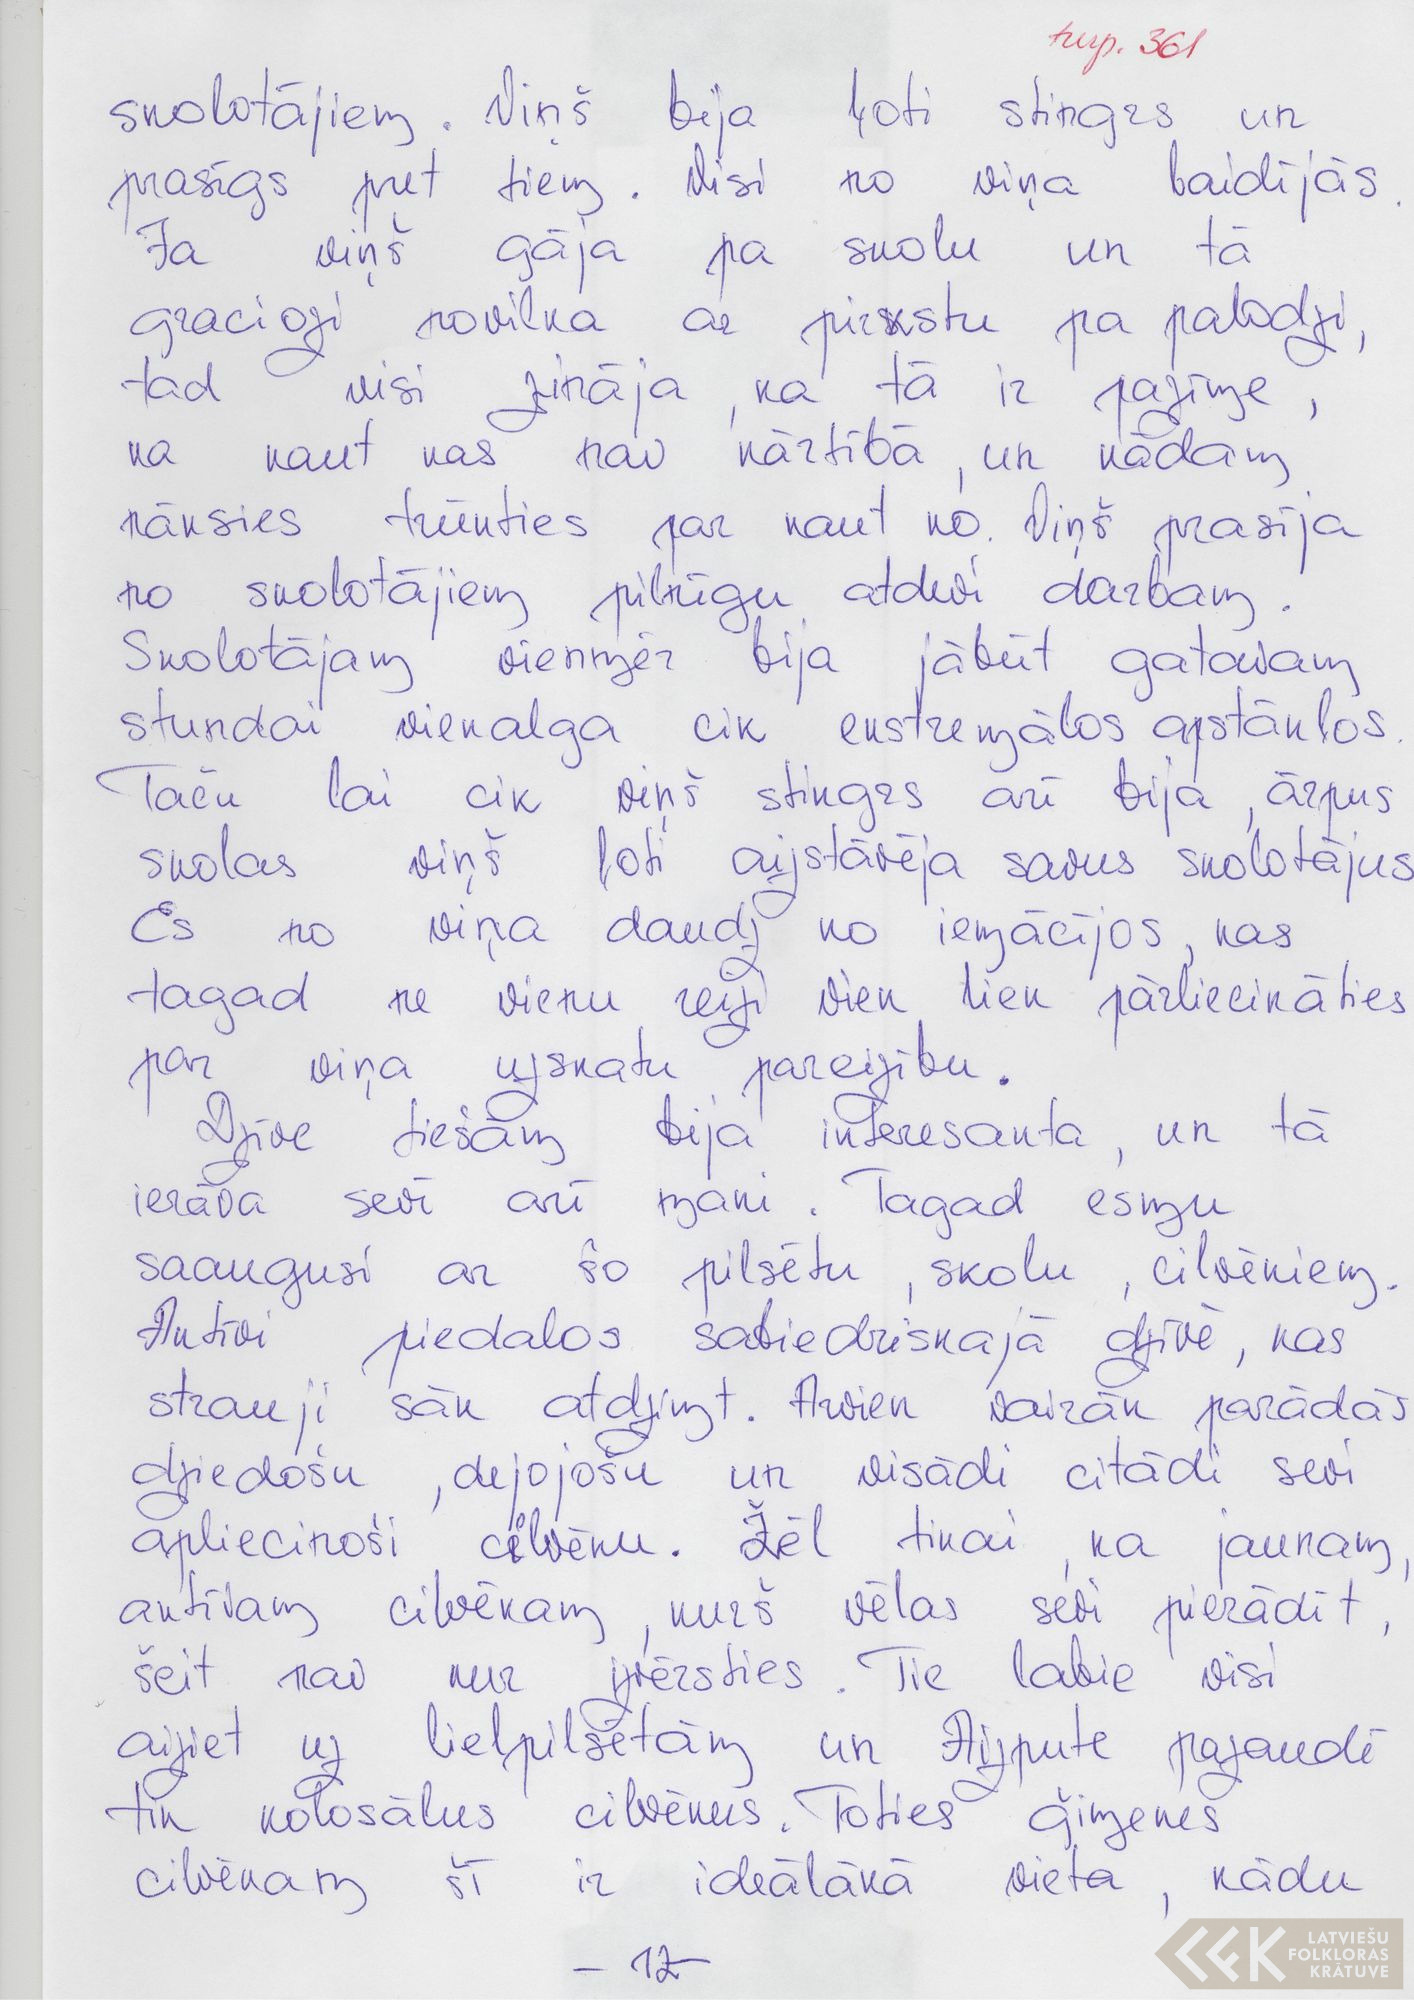 turp. 361
skolotājiem. Viņš bija ļoti stingrs un
prasīgs pret tiem. Visi no viņa baidījās.
Ja viņš gāja pa skolu un tā
graciozi novilka ar pirkstu pa palodzi,
tad visi zināja, ka tā ir pazīme,
ka kaut kas nav kārtībā, un kādam
nāksies trūkties par kaut ko. Viņš prasīja
no skolotājiem pilnīgu atdevi darbam.
Skolotājam vienmēr bija jābūt gatavam
stundai vienalga cik ekstremālos apstākļos.
Taču lai cik viņš stingrs arī bija, ārpus
skolas viņš ļoti aizstāvēja savus skolotājus
Es no viņa daudz ko iemācījos, kas
tagad ne vienu reizi vien liek pārliecināties
par viņa uzskatu pareizību.
Dzīve tiešām bija interesanta, un tā
ierāva sevī arī mani. Tagad esmu
saaugusi ar šo pilsētu, skolu, cilvēkiem.
Aktīvi piedalos sabiedriskajā dzīvē, kas
strauji sāk atdzimt. Arvien vairāk parādās
dziedošu, dejojošu un visādi citādi sevi
apliecinoši cilvēku. Žēl tikai, ka jaunam,
aktīvam cilvēkam, kurš vēlas sevi pierādīt,
šeit nav kur izvērsties. Tie labie visi
aiziet uz lielpilsētām un Aizpute pazaudē
tik kolosālus cilvēkus. Toties ģimenes
cilvēkam šī ir ideālākā vieta, kādu
- 12 -
LATVIEŠU
FOLKLORAS
KRĀTUVE